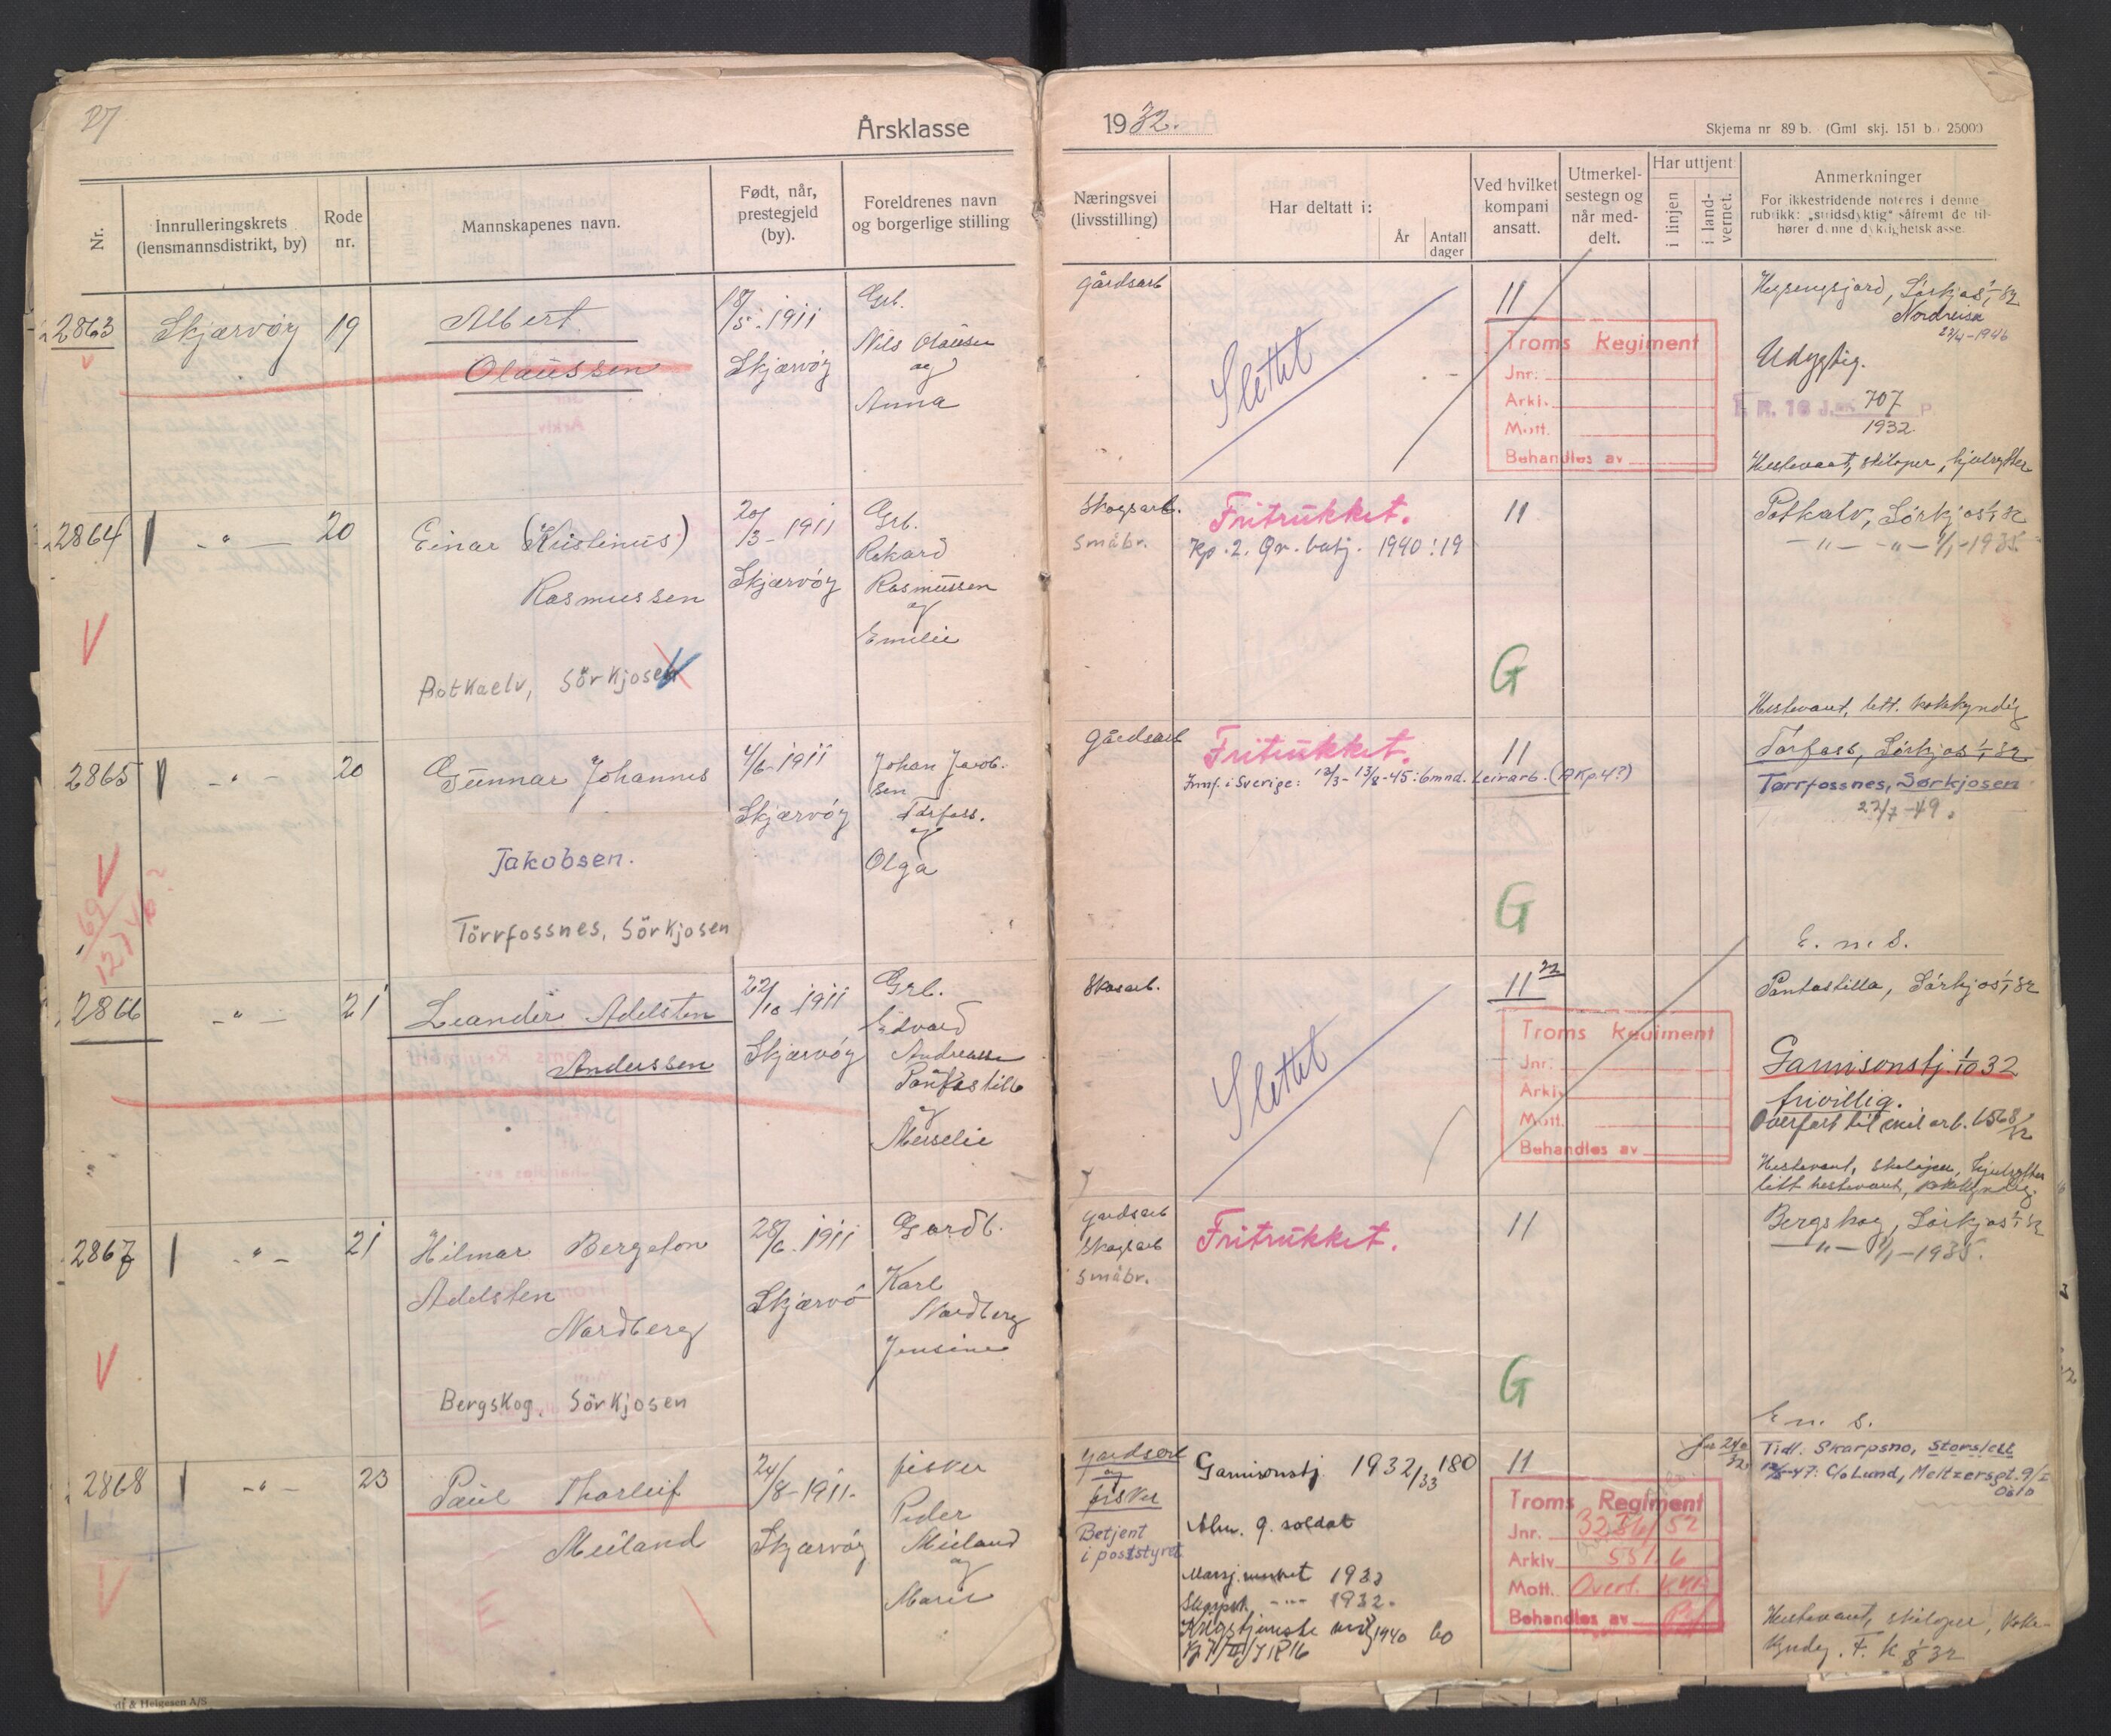 27
Årsklasse
1932.
Skjema nr 89 b. (Gml skj. 151 b) 25000
Nr.
Innrulleringskrets
(lensmannsdistrikt, by)
Rode
nr.
Mannskapenes navn.
Født, når,
prestegjeld
(by).
Foreldrenes navn
og borgerlige stilling
Næringsvei
(livsstilling)
Har deltatt i:
År
Antall
dager
Ved hvilket
kompani
ansatt.
Utmerkel-
sestegn og
når med-
delt.
Har uttjent
i linjen
i land-
vernet.
Anmerkninger
For ikkestridende noteres i denne
rubrikk: „stridsdyktig" såfremt de til-
hører denne dyktighetsklasse.
2863
Skjærvöy
19
Albert
Olaussen
18/5-1911
Skjærvöy
Grb.
Nils Olaussen
og
Anna
gårdsarb
Slettet
11
Troms Regiment
Jnr.
Arkiv.
Mott.
Behandles av
Sörkjos 1/1-32
Nordreisa
23/4-1946
Udygtig.
I. R. 16 J.nr. 707 P.
1932.
Hestevant, skilöper, hjulrytter
2864
- " -
20
Einar (Kristinus)
Rasmussen
Rotkaelv, Sörkjosen
20/3-1911
Skjærvöy
Grb.
Rikard
Rasmussen
og
Emilie
Skogsarb.
småbr.
Fritrukket.
Kp. 2. Gr. batj. 1940: 19
11
G
Rotkalv, Sörkjos 1/1-32
- " - - " - 1/1-1935.
Hestevant, litt. kokekyndig
2865
- " -
20
Gunnar Johannes
Jakobsen.
Törrfossnes, Sörkjosen
4/6-1911
Skjærvöy
Johan Jacob-
sen
Törfoss.
og
Olga
69
1274б?
gårdsarb
Fritrukket.
Innf. i Sverige: 12/3-13/8-45: 6mnd. Leirarb. (AKp.4?)
11
G
Törfoss, Sörkjos 1/1-32
Tørrfossnes, Sørkjosen
22/7-49.
E. n. S.
2866
- " -
21
Leander Adelsten
Anderssen
22/10-1911
Skjærvöy
Grb.
Edvard
Andreassen
Punkastilla
og
Merselie
Skosarb.
Slettet
11
22
Troms Regiment
Jnr.
Arkiv
Mott.
Behandles av
Punkastilla, Sörkjos 1/1-32
Garnisonstj. 1/10 32
frivillig.
Overført til sivil arb. 1568/32
Hestevant, skilöper, hjulrytter
litt hestevant, kokekyndig.
2867
- " -
21
Hilmar Bergeton
Adelsten
Nordberg
Bergskog, Sörkjosen
28/6-1911
Skjærvö
Gardb.
Karl
Nordberg
Jensine
gardsarb
Skogsarb
småbr.
Fritrukket.
11
G
Bergskog, Sörkjos 1/1-32
- " - 1/1-1935.
E. n. S.
2868
- " -
23
Paul Thorleif
Meiland
24/8-1911.
Skjærvöy
fisker
Peder
Meiland
og
Marie
gardsarb
og
fisker
Betjent
i poststyret
Garnisonstj. 1932/33 180
Alm. g. soldat
Marsj.merket 1933
Skarpsk. - " - 1932.
Krigstjeneste ved 1940 60
Kp 7/II/IR16
11
Troms Regiment
Jnr. 3236/52
Arkiv 551.6
Mott. Overf. KKN
Behandles av
Tidl. Skarpsno, Storslett
12/8-47: C/o Lund, Meltzersgt. 9/I
Oslo
Hestevant, skilöper, koke-
kyndig. F. K 1/8 32
& Helgesen A/S